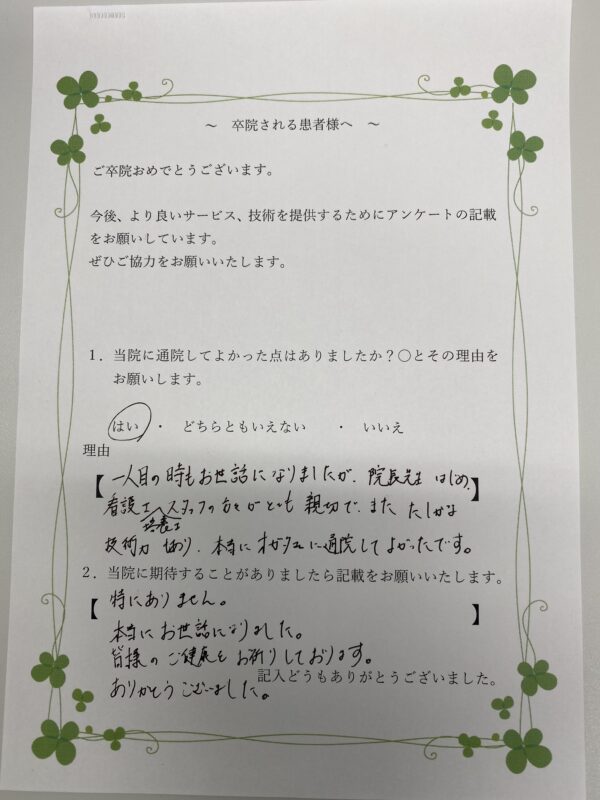 ～ 卒院される患者様へ ～
ご卒院おめでとうございます。
今後、より良いサービス、技術を提供するためにアンケートの記載
をお願いしています。
ぜひご協力をお願いいたします。
1．当院に通院してよかった点はありましたか？〇とその理由を
お願いします。
はい ・ どちらともいえない ・ いいえ
理由
【一人目の時もお世話になりましたが、院長先生はじめ、】
看護士 培養士 スタッフの方々がとても親切で、また たしかな
技術力もあり、本当にオガタに通院してよかったです。
2．当院に期待することがありましたら記載をお願いいたします。
【特にありません。】
本当にお世話になりました。
皆様のご健康をお祈りしております。
記入どうもありがとうございました。
ありがとうございました。